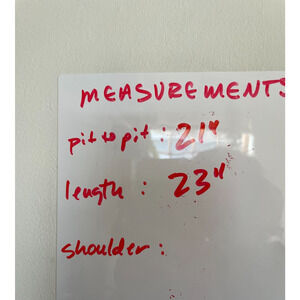 MEASUREMENTS
pit to pit : 21"
length : 23"
shoulder :